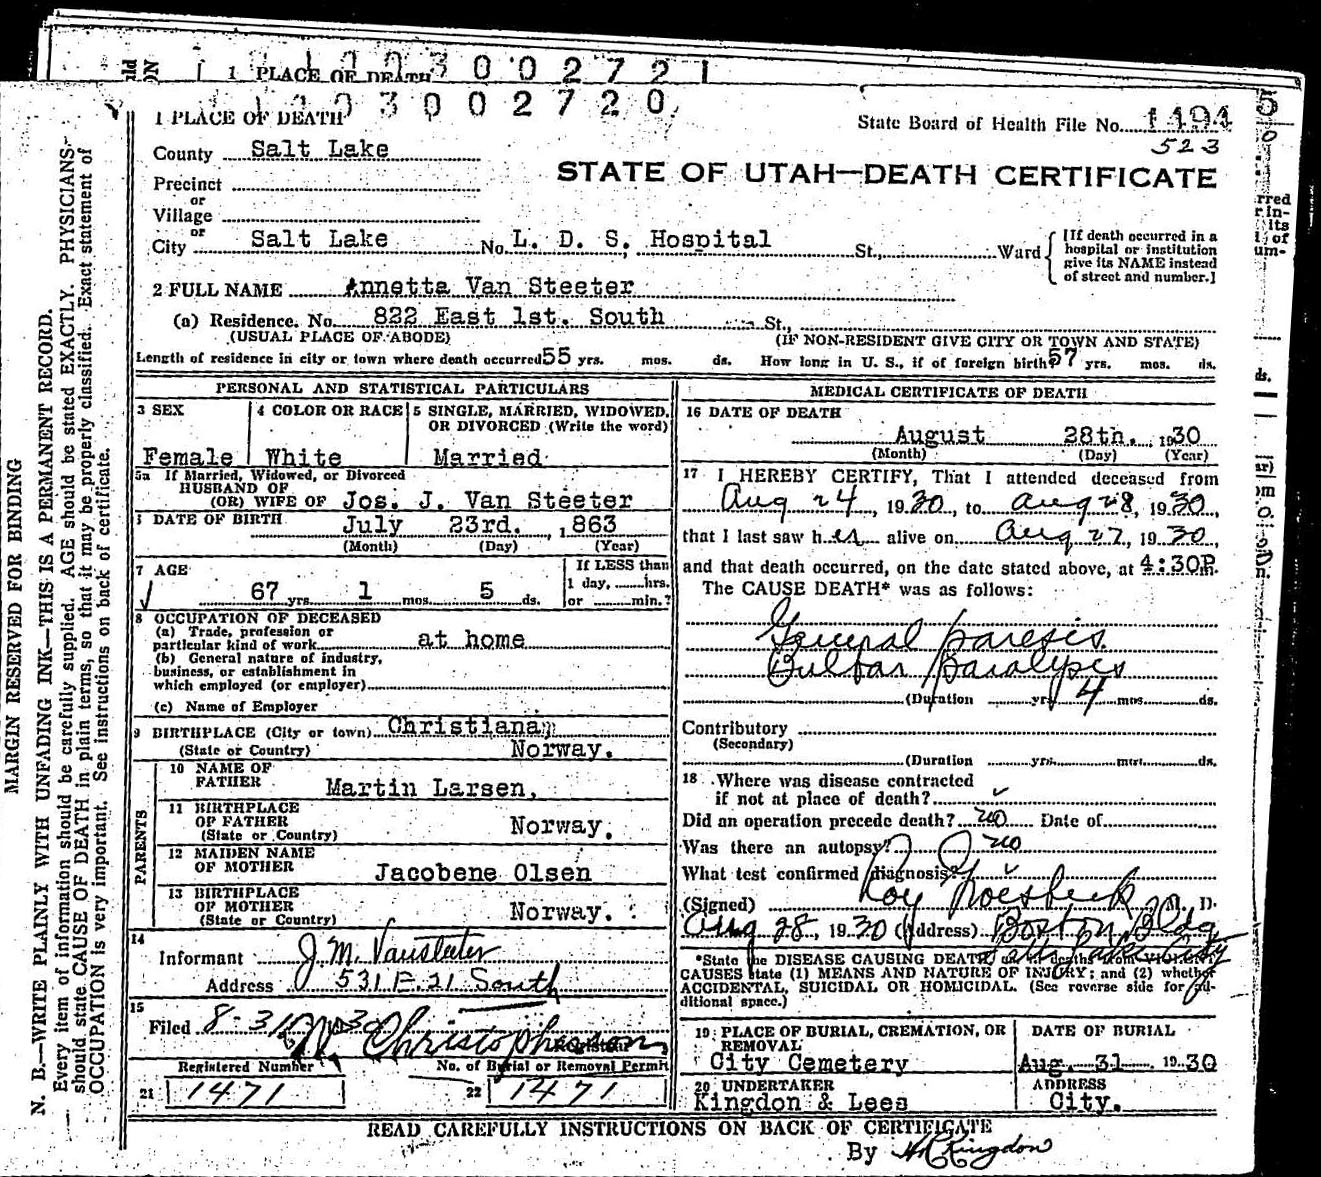 1 PLACE OF DEATH 0 0 2 7 2 1
3 0 0 2 7 2 0
1 PLACE OF DEATH
State Board of Health File No. 1494
523
County Salt Lake
STATE OF UTAH—DEATH CERTIFICATE
Precinct
or
Village
or
City Salt Lake No. L. D. S. Hospital St., Ward
[If death occurred in a
hospital or institution
give its NAME instead
of street and number.]
2 FULL NAME Annetta Van Steeter
(a) Residence. No. 822 East 1st. South St.,
(USUAL PLACE OF ABODE) (IF NON-RESIDENT GIVE CITY OR TOWN AND STATE)
Length of residence in city or town where death occurred 55 yrs. mos. ds. How long in U. S., if of foreign birth? 57 yrs. mos. ds.
PERSONAL AND STATISTICAL PARTICULARS
3 SEX 4 COLOR OR RACE 5 SINGLE, MARRIED, WIDOWED,
OR DIVORCED (Write the word)
Female White Married
5a If Married, Widowed, or Divorced
HUSBAND OF
(OR) WIFE OF Jos. J. Van Steeter
DATE OF BIRTH July 23rd. , 1863
(Month) (Day) (Year)
7 AGE
If LESS than
1 day, hrs.
or min.?
67 yrs. 1 mos. 5 ds.
8 OCCUPATION OF DECEASED
(a) Trade, profession or
particular kind of work at home
(b) General nature of industry,
business, or establishment in
which employed (or employer)
(c) Name of Employer
9 BIRTHPLACE (City or town) Christiana,
(State or Country) Norway.
PARENTS
10 NAME OF
FATHER Martin Larsen,
11 BIRTHPLACE
OF FATHER
(State or Country) Norway.
12 MAIDEN NAME
OF MOTHER Jacobene Olsen
13 BIRTHPLACE
OF MOTHER
(State or Country) Norway.
14
Informant J. M. Vansteeter
Address 531 E. 21 South
15
Filed 8-31 Christopherson
Registrar
Registered Number No. of Burial or Removal Permit
21 1471 22 1471
MEDICAL CERTIFICATE OF DEATH
16 DATE OF DEATH
August 28th. , 1930
(Month) (Day) (Year)
17 I HEREBY CERTIFY, That I attended deceased from
Aug 24, 1930, to Aug 28, 1930,
that I last saw her alive on Aug 27, 1930,
and that death occurred, on the date stated above, at 4:30P.m.
The CAUSE DEATH* was as follows:
General paresis.
Bulbar paralysis
(Duration yrs. 4 mos. ds.
Contributory
(Secondary)
(Duration yrs. mos. ds.
18 Where was disease contracted
if not at place of death?
Did an operation precede death? no Date of
Was there an autopsy? no
What test confirmed diagnosis?
(Signed) Roy Groesbeck M. D.
Aug 28, 1930 (Address) Boston Bldg
Salt Lake City
*State the DISEASE CAUSING DEATH, or in deaths from VIOLENT
CAUSES state (1) MEANS AND NATURE OF INJURY; and (2) whether
ACCIDENTAL, SUICIDAL OR HOMICIDAL. (See reverse side for ad-
ditional space.)
19 PLACE OF BURIAL, CREMATION, OR
REMOVAL
City Cemetery
DATE OF BURIAL
Aug. 31 1930
20 UNDERTAKER
Kingdon & Lees
ADDRESS
City.
READ CAREFULLY INSTRUCTIONS ON BACK OF CERTIFICATE
By Kingdon
MARGIN RESERVED FOR BINDING
N. B.—WRITE PLAINLY WITH UNFADING INK—THIS IS A PERMANENT RECORD.
Every item of information should be carefully supplied. AGE should be stated EXACTLY. PHYSICIANS
should state CAUSE OF DEATH in plain terms, so that it may be properly classified. Exact statement of
OCCUPATION is very important. See instructions on back of certificate.